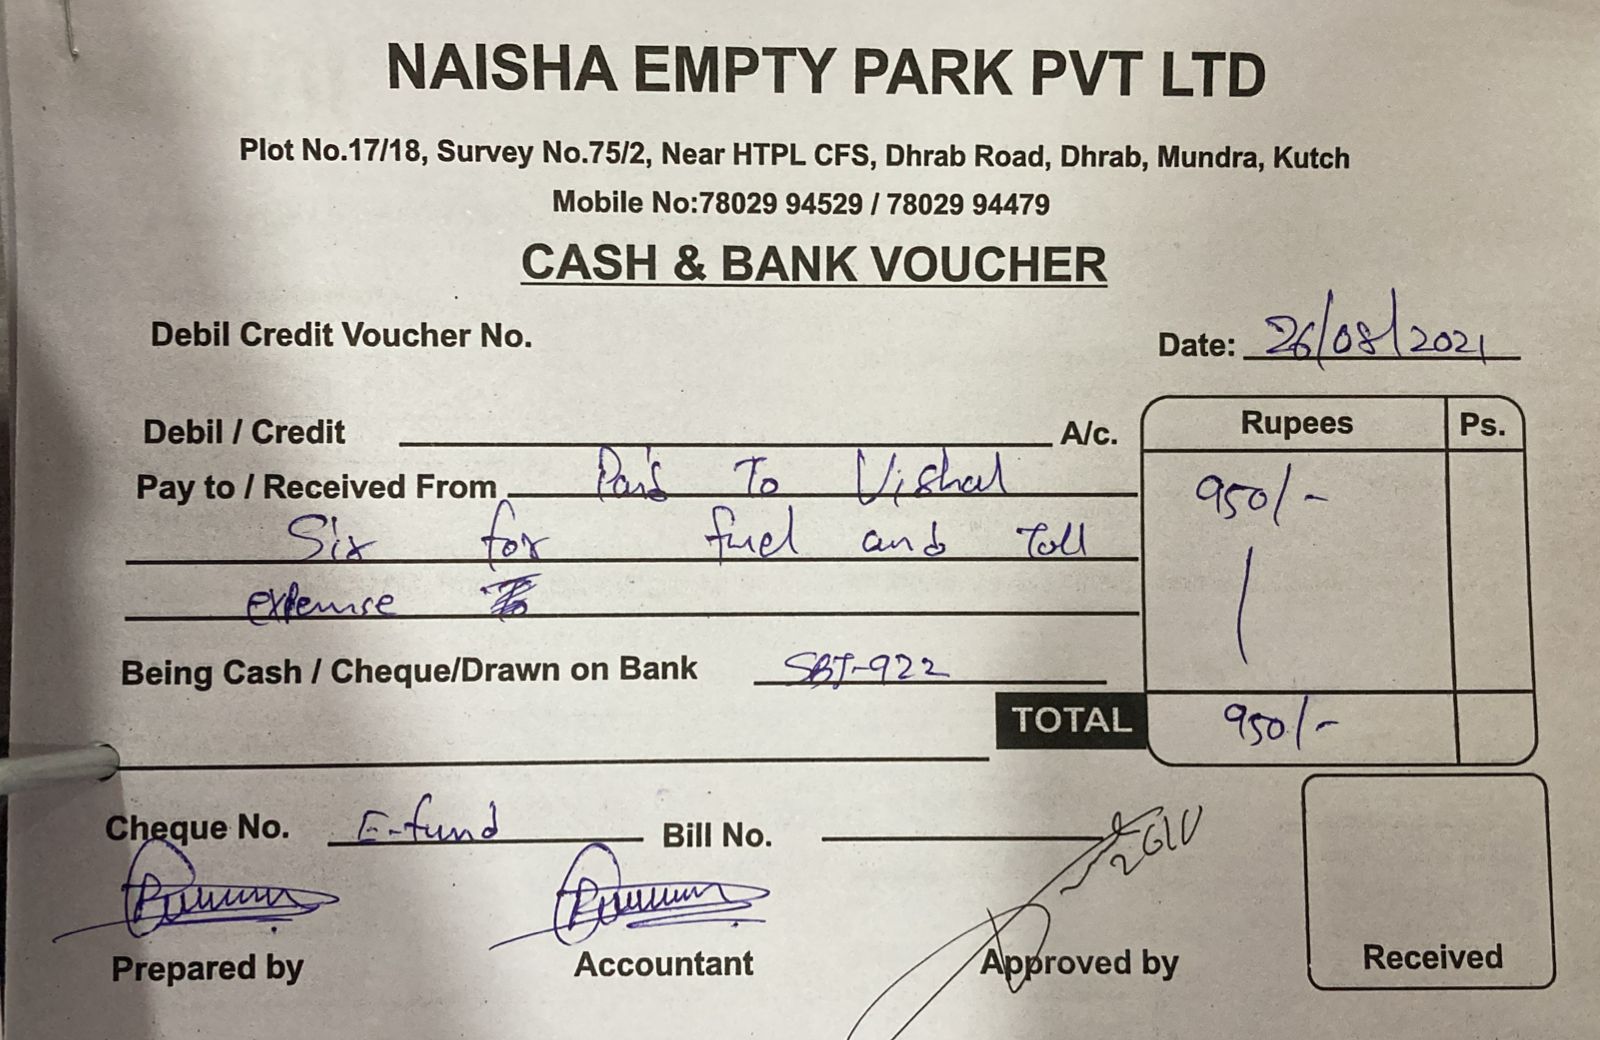 NAISHA EMPTY PARK PVT LTD
Plot No.17/18, Survey No.75/2, Near HTPL CFS, Dhrab Road, Dhrab, Mundra, Kutch
Mobile No:78029 94529 / 78029 94479
CASH & BANK VOUCHER
Debil Credit Voucher No.
Date: 26/08/2021
Debil / Credit A/c.
Rupees Ps.
Pay to / Received From Paid To Vishal
950/-
Sir for fuel and Toll
expense
Being Cash / Cheque/Drawn on Bank SBI-922
TOTAL 950/-
Cheque No. E-fund Bill No.
Prepared by Accountant Approved by Received